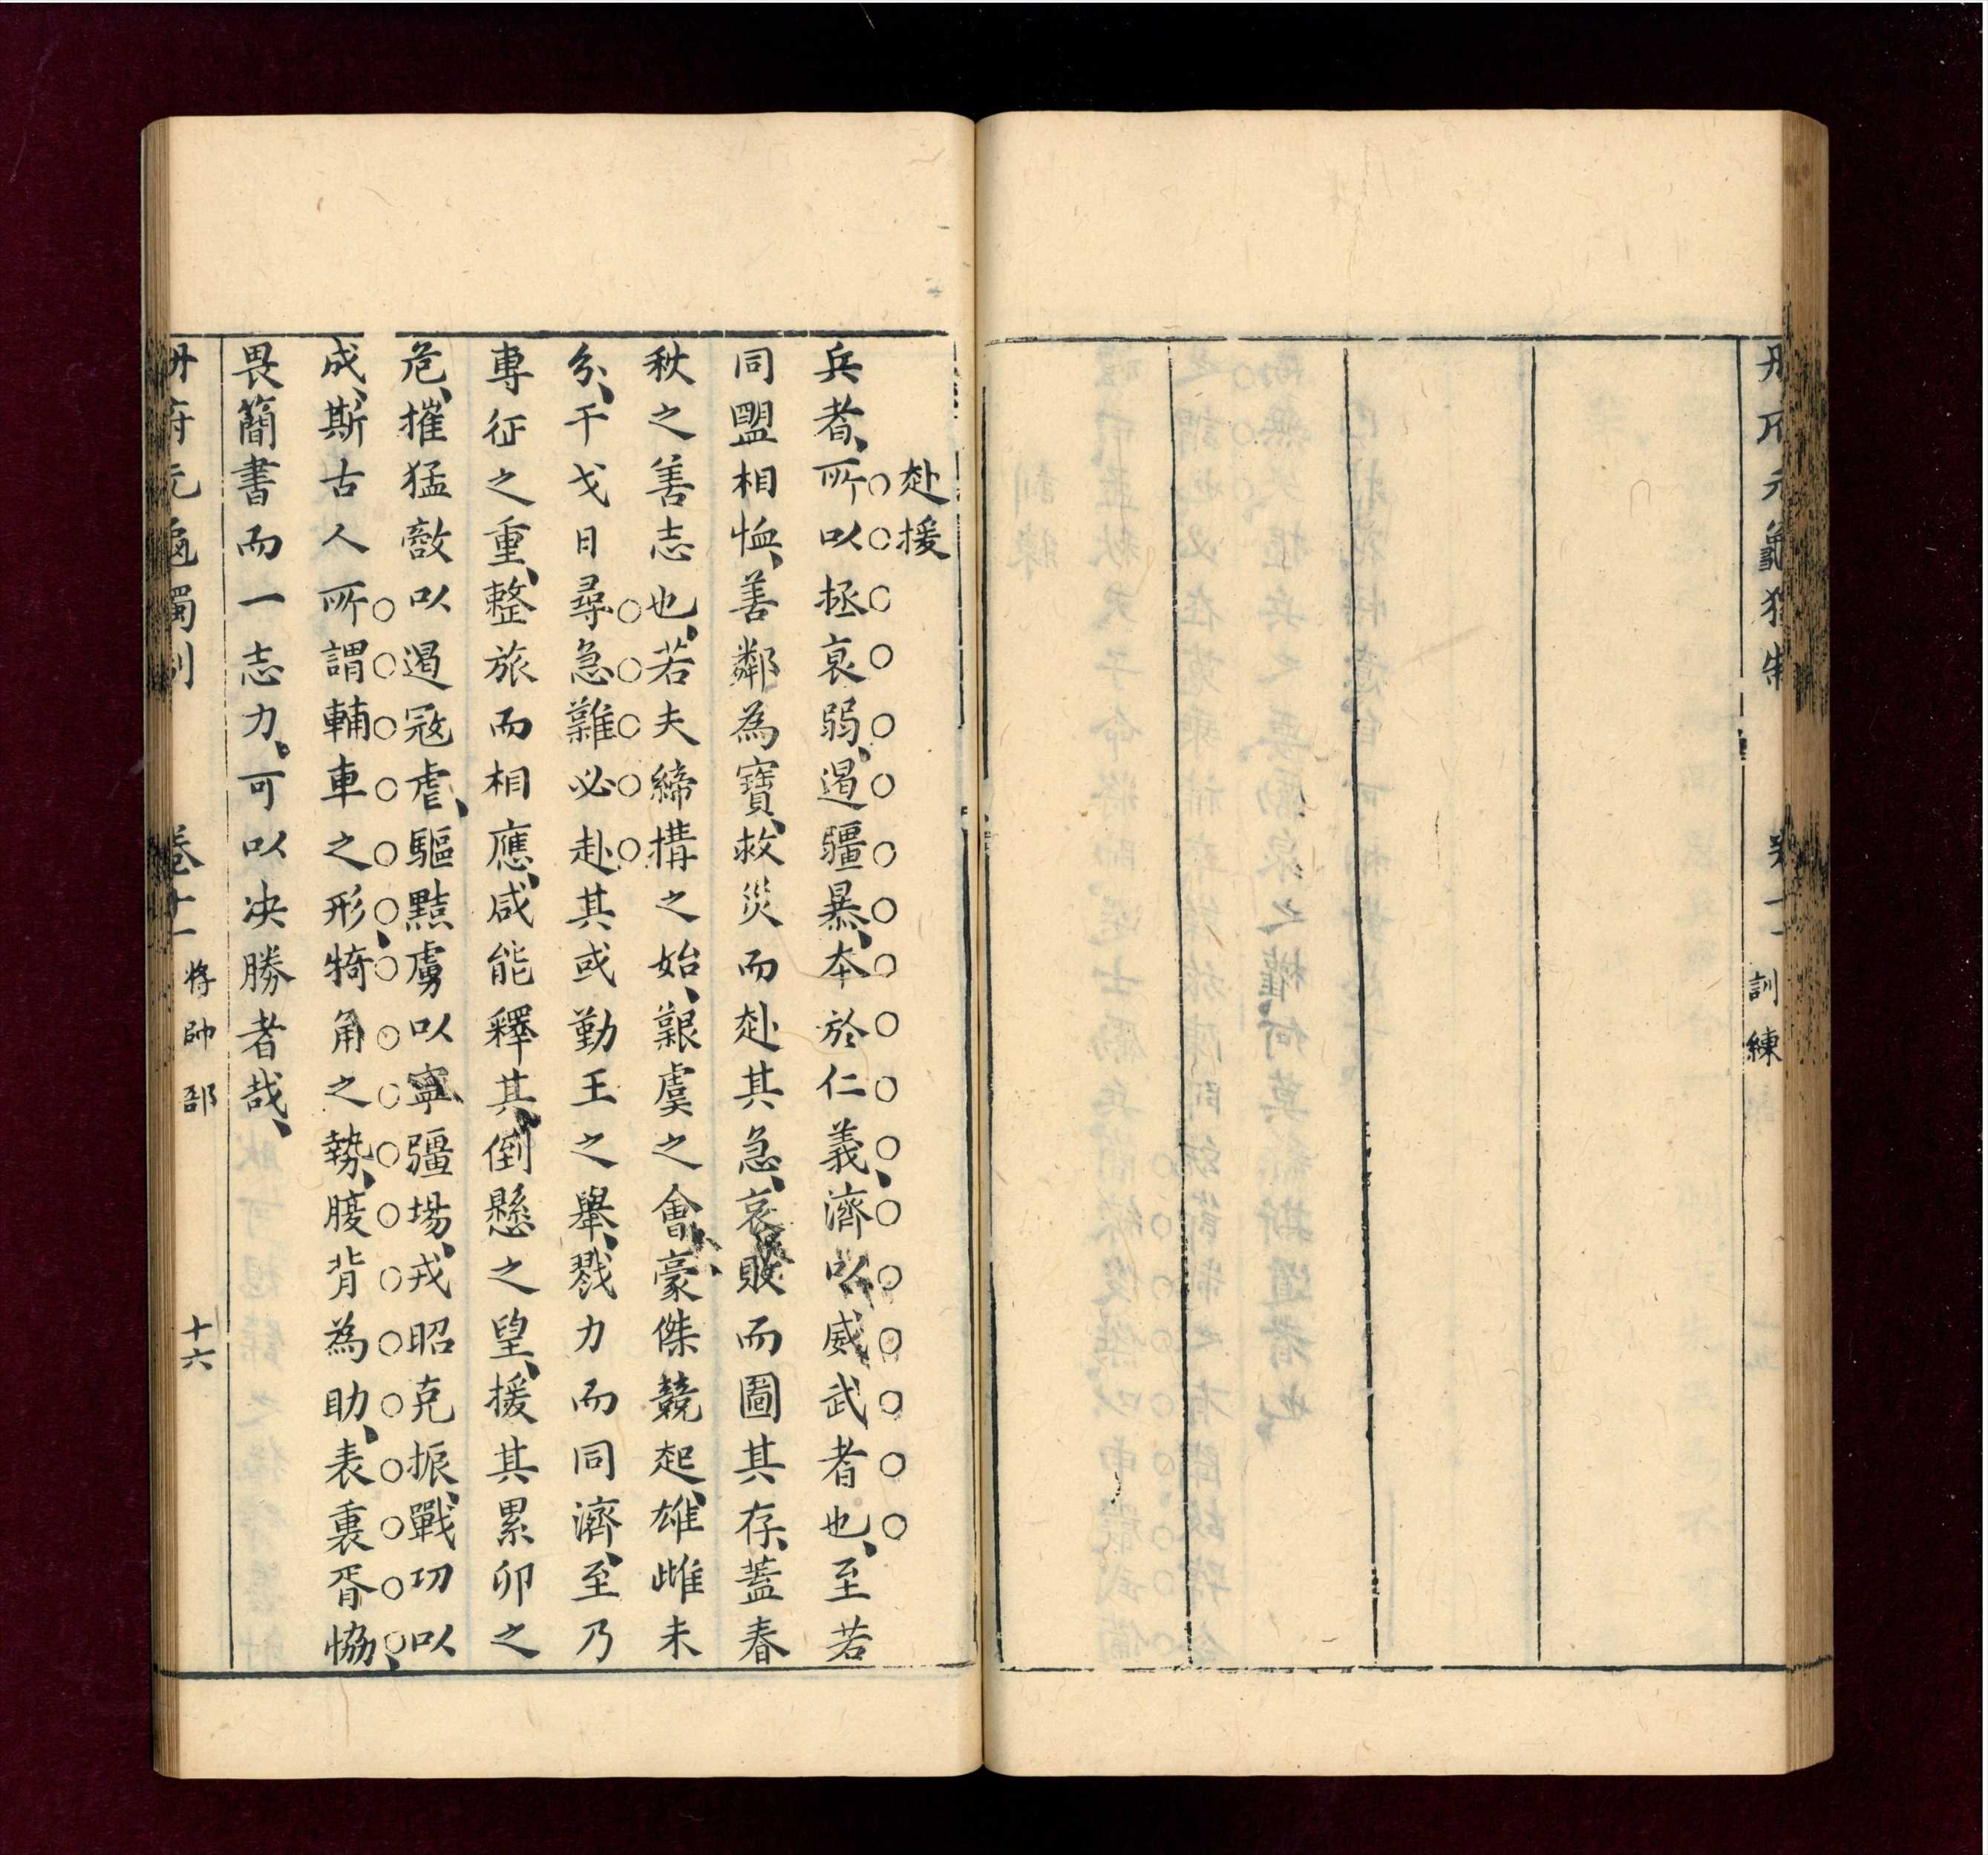 訓練
赴援
兵者、所以拯哀弱、遏疆暴、本於仁義、濟以威武者也、至若
同盟相恤、善鄰為寶、救災而赴其急、哀敗而圖其存、蓋春
秋之善志也、若夫締構之始、艱虞之會、豪傑競起、雄雌未
分、干戈日尋、急難必赴、其或勤王之舉、戮力而同濟、至乃
專征之重、整旅而相應、咸能釋其倒懸之望、援其累卵之
危、摧猛敵以遏寇虐、驅黠虜以寧疆埸、戎昭克振、戰功以
成、斯古人所謂輔車之形、犄角之勢、腹背為助、表裏胥協、
畏簡書而一志力、可以决勝者哉、
冊府元龜獨制 卷十一 將帥部 十六